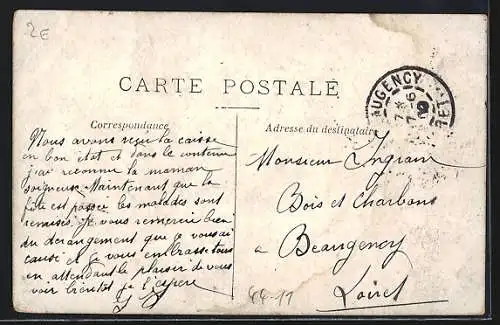 2E
CARTE POSTALE
Correspondance
Adresse du destinataire
Nous avons reçu la caisse
en bon état et dans le contenu
j'ai reconnu la maman
soigneuse. Maintenant que la
fête est passée les malades sont
remises. Je vous remercie bien
du dérangement que je vous ai
causé et je vous embrasse tous
en attendant le plaisir de vous
voir bientôt je l'espère
Monsieur Ingrain
Bois et Charbons
a Beaugency
Loiret
UGENCY
44-11